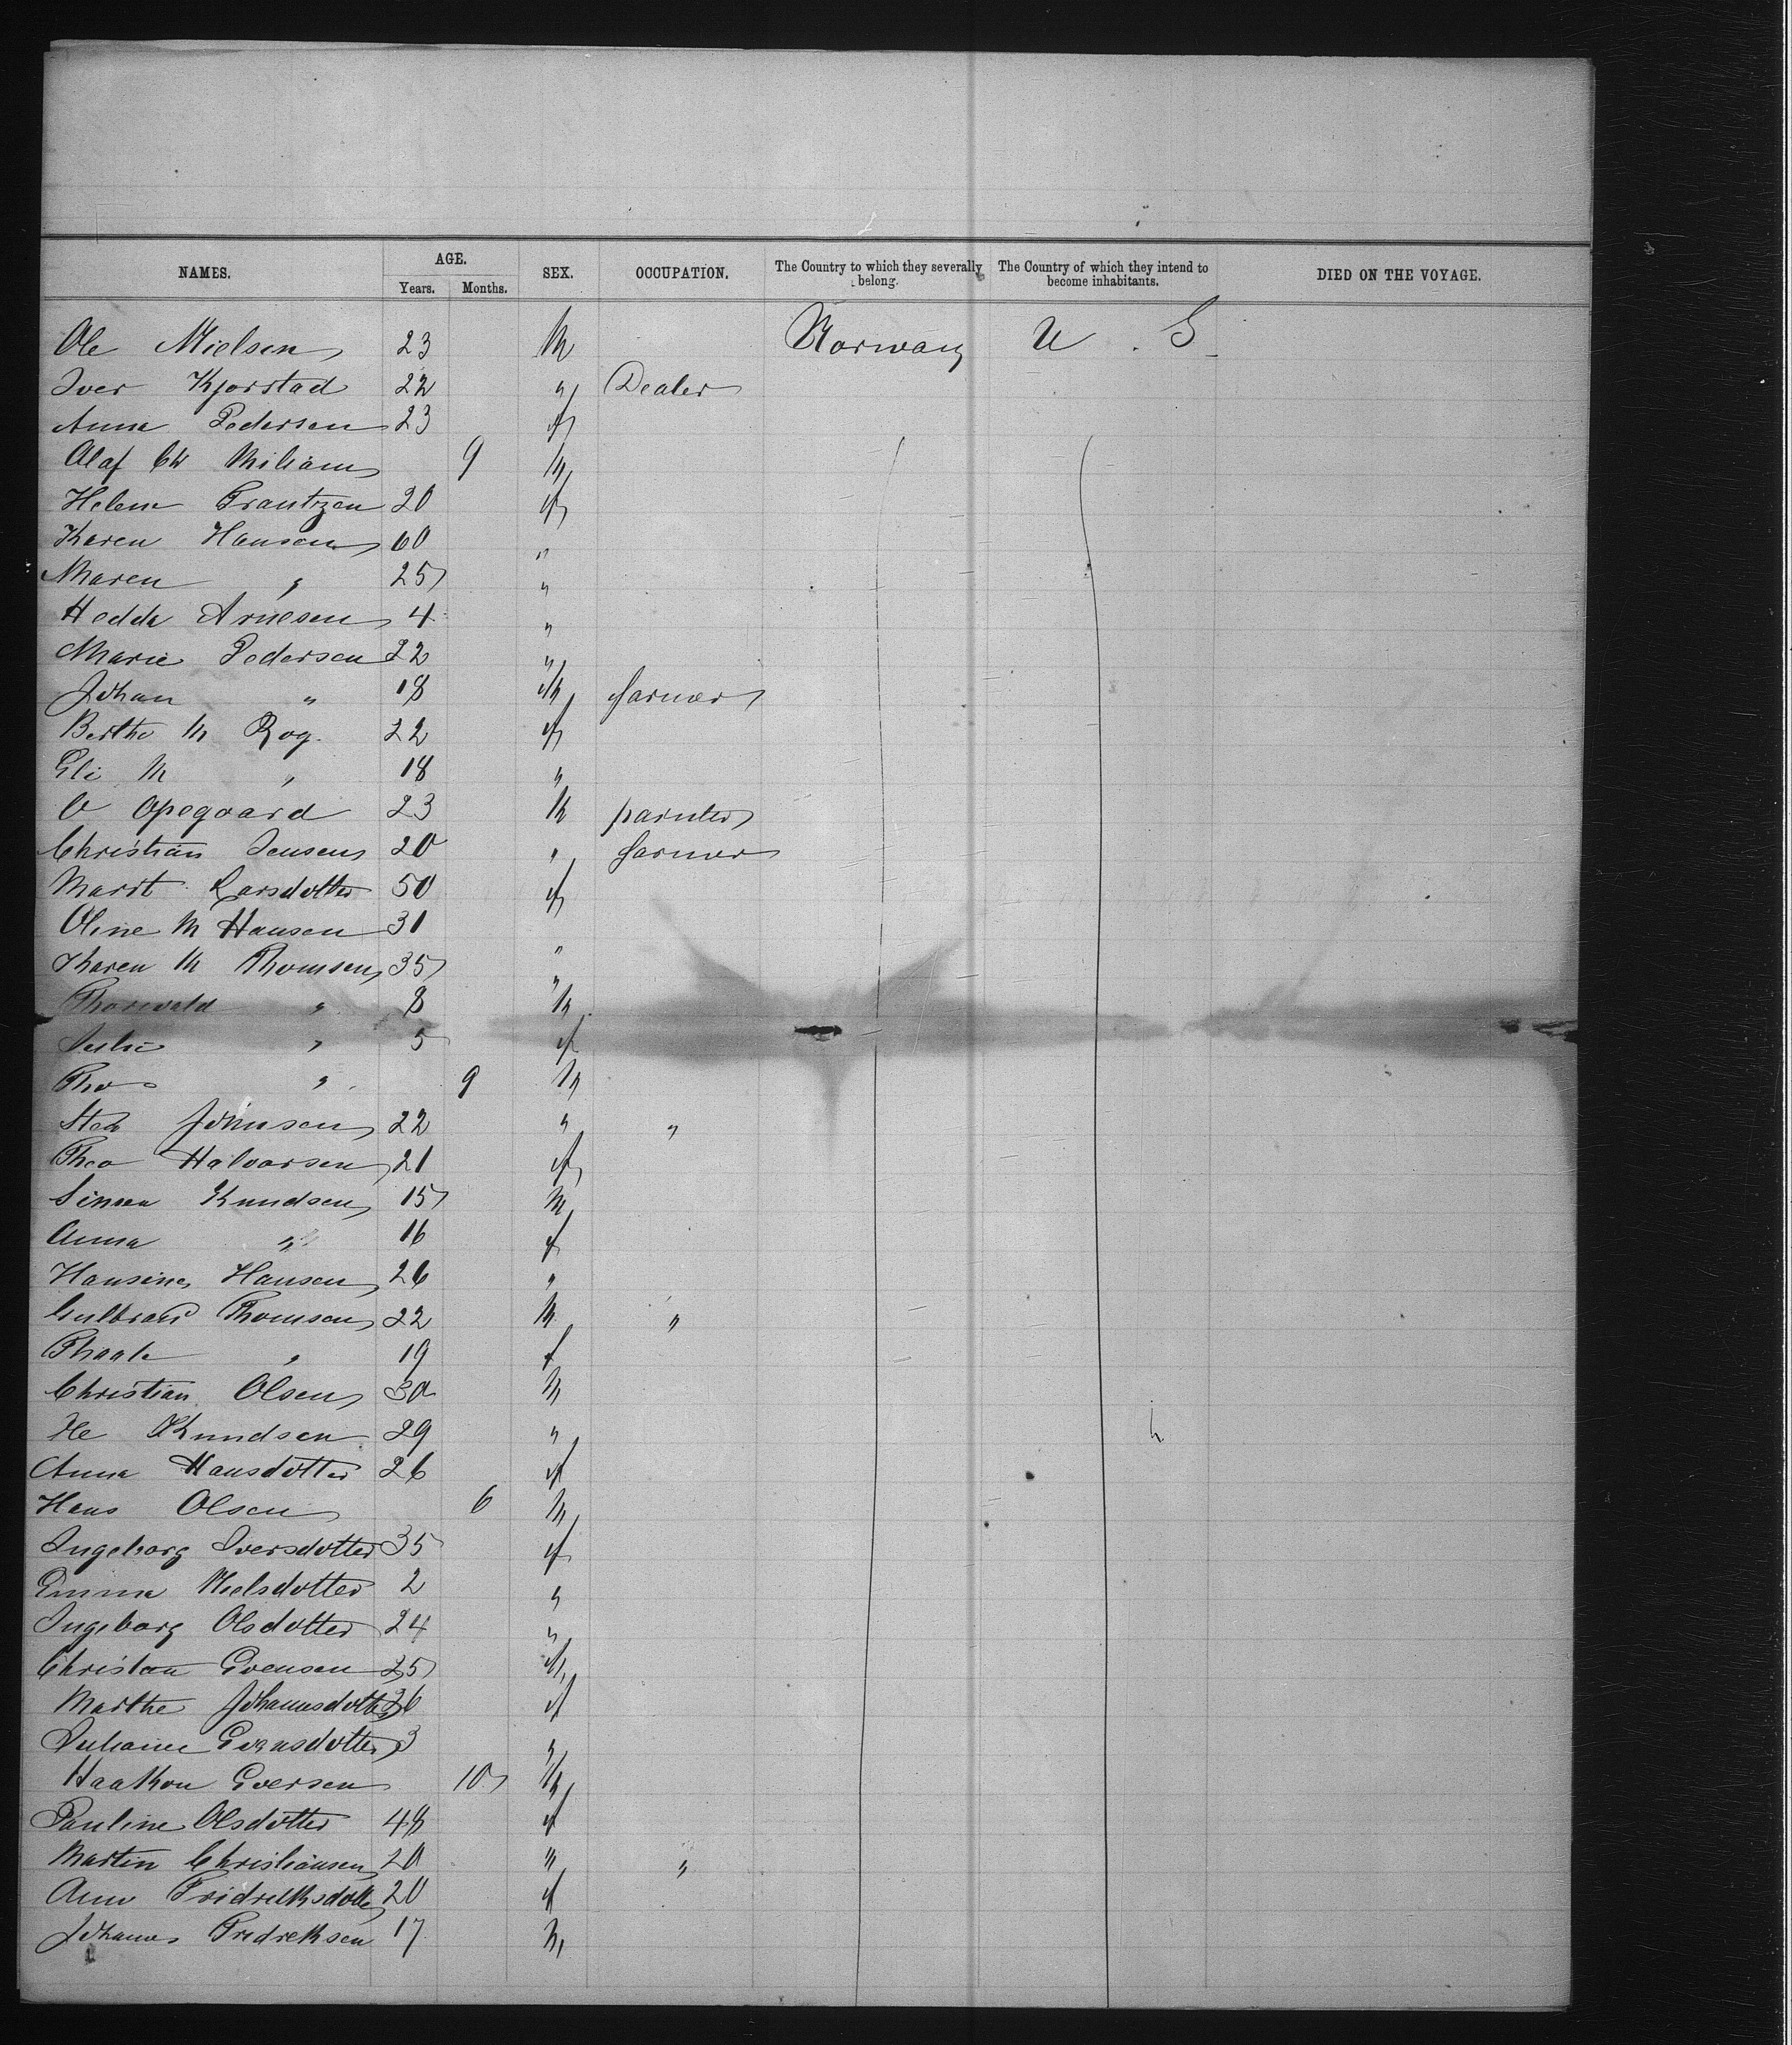 NAMES. AGE. SEX. OCCUPATION. The Country to which they severally belong. The Country of which they intend to become inhabitants. DIED ON THE VOYAGE.
Years. Months.
Ole Nielsen 23 M Norway U. S.
Iver Kjorstad 22 " Dealer
Anna Pedersen 23 f
Olaf Ch 9 M
Helene Frantzen 20 f
Karen Hansen 60 "
Maren " 25 "
Hedda Arnesen 4 "
Marie Pedersen 22 "
Johan " 18 M farmer
Berthe M Rog 22 f
Eli M " 18 "
O Opegaard 23 M painter
Christian Jensen 20 " farmer
Marit Larsdotter 50 f
Oline M Hansen 31 "
Karen M Thomsen 35 "
Thorwald " 8 M
Julie " 5 f
Tho " 9 M
Sten Johnsen 22 " "
Thea Halvorsen 21 f
Simen Knudsen 15 M
Anna " 16 f
Hansine Hansen 26 "
Gulbrand Thomsen 22 M "
" 19 f
Christian Olsen 30 M
Ole Knudsen 29 "
Anna Hansdotter 26 f
Hans Olsen 6 M
Ingeborg Iversdotter 35 f
Emma Nielsdotter 2 "
Ingeborg Olsdotter 24 "
Christian Evensen 25 M
Marthe Johannesdotter 26 f
Juliane Evensdotter 3 "
Haakon Eversen 10 M
Pauline Olsdotter 48 f
Martin Christiansen 20 " "
Ann Fridrelksdotte 20 f
Johannes Fredreksen 17 M